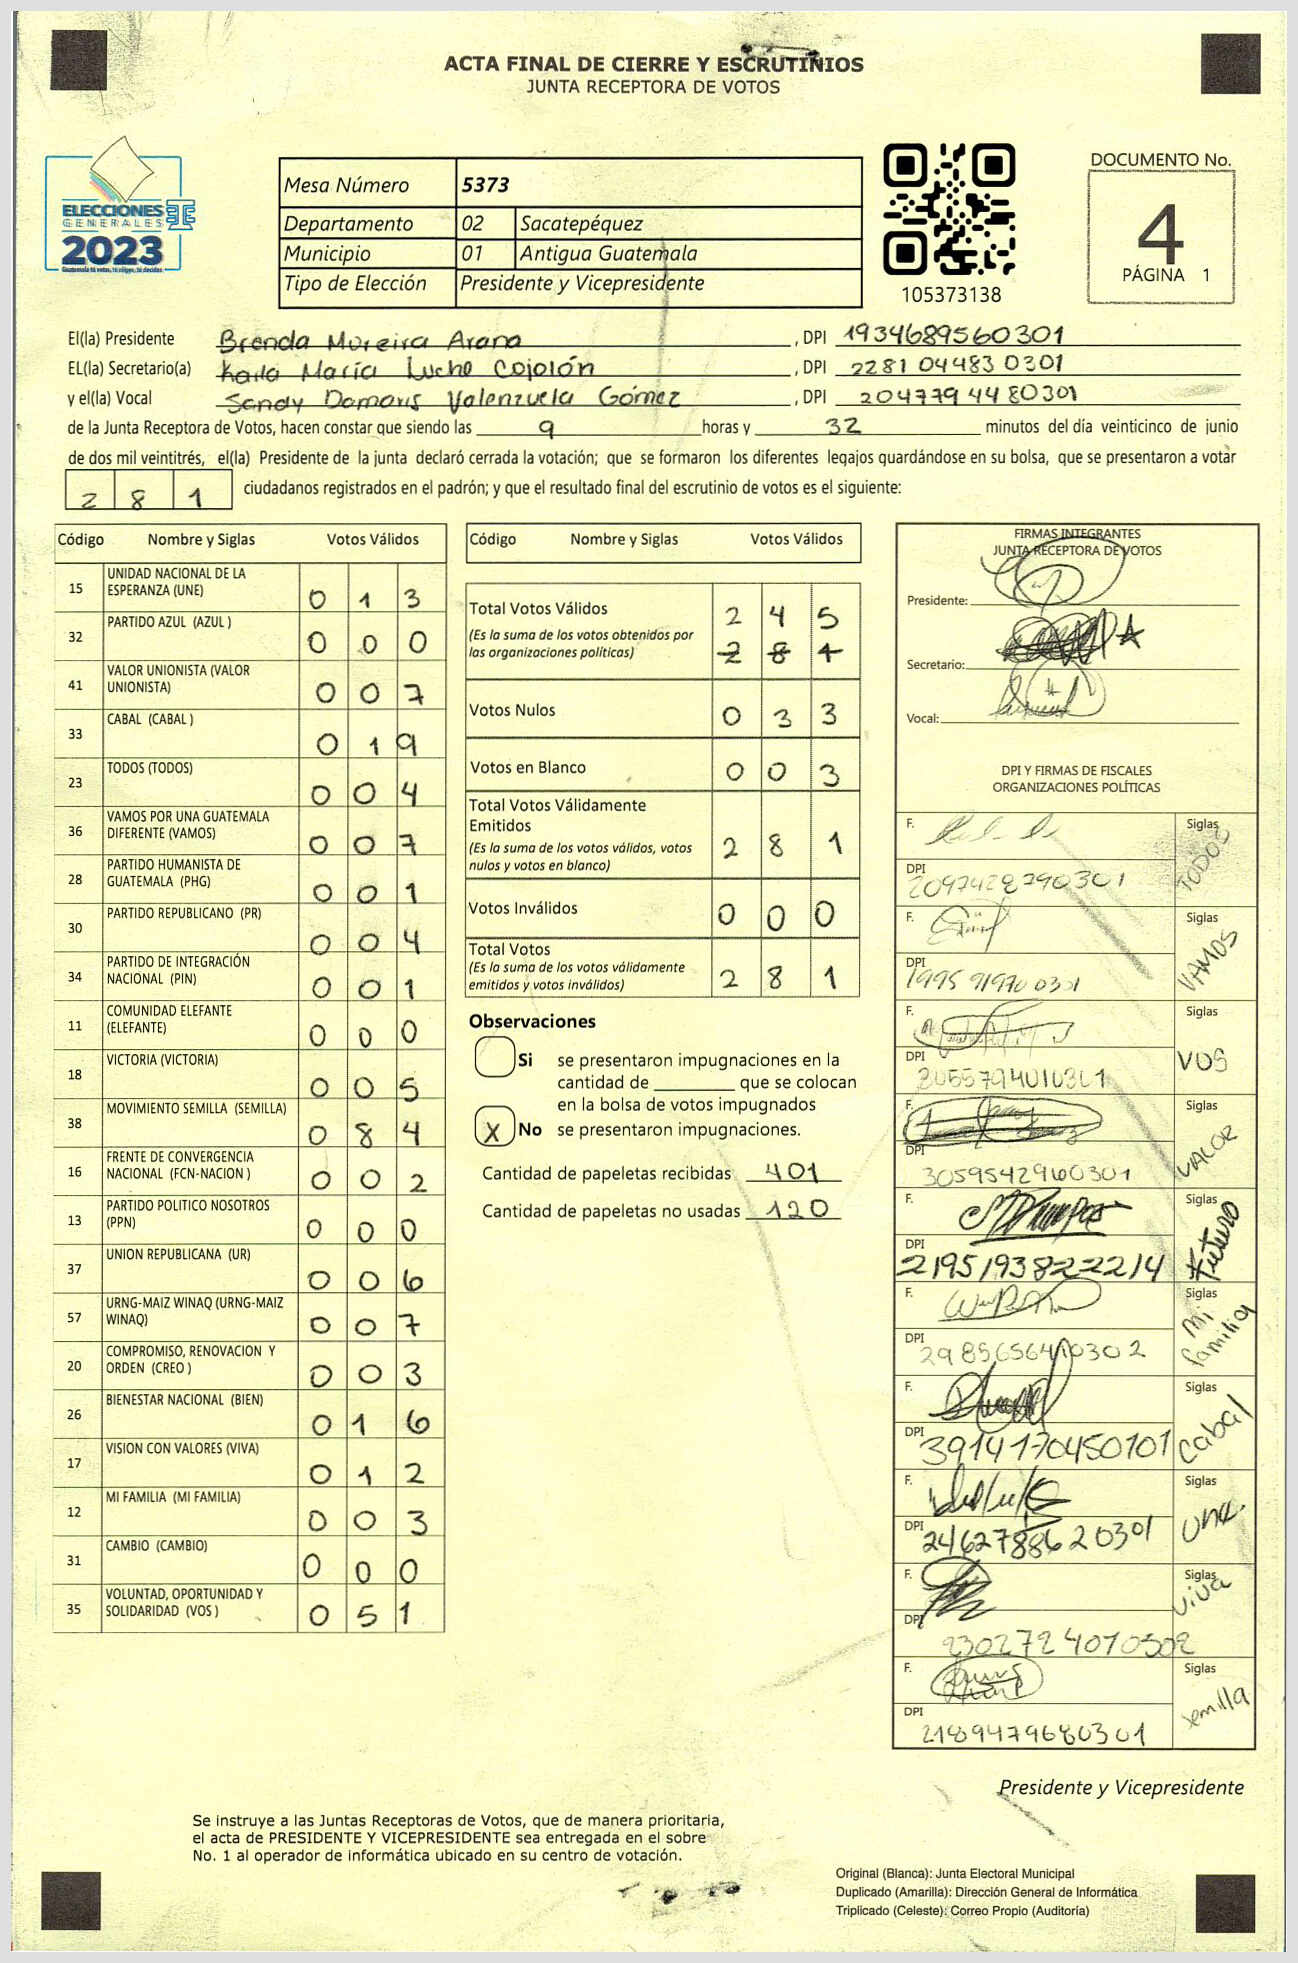 ACTA FINAL DE CIERRE Y ESCRUTINIOS
JUNTA RECEPTORA DE VOTOS
ELECCIONES
GENERALES
2023
Guatemala tú votas, tú eliges, tú decides
Mesa Número 5373
Departamento 02 Sacatepéquez
Municipio 01 Antigua Guatemala
Tipo de Elección Presidente y Vicepresidente
105373138
DOCUMENTO No.
4
PÁGINA 1
El(la) Presidente Brenda Moreira Arana, DPI 1934689560301
EL(la) Secretario(a) Karla María Luche Cojolón, DPI 2281 04483 0301
y el(la) Vocal Sandy Damaris Valenzuela Gómez, DPI 204779448 0301
de la Junta Receptora de Votos, hacen constar que siendo las 9 horas y 32 minutos del día veinticinco de junio
de dos mil veintitrés, el(la) Presidente de la junta declaró cerrada la votación; que se formaron los diferentes legajos guardándose en su bolsa, que se presentaron a votar
2 8 1 ciudadanos registrados en el padrón; y que el resultado final del escrutinio de votos es el siguiente:
Código Nombre y Siglas Votos Válidos
15 UNIDAD NACIONAL DE LA ESPERANZA (UNE) 0 1 3
32 PARTIDO AZUL (AZUL ) 0 0 0
41 VALOR UNIONISTA (VALOR UNIONISTA) 0 0 7
33 CABAL (CABAL ) 0 1 9
23 TODOS (TODOS) 0 0 4
36 VAMOS POR UNA GUATEMALA DIFERENTE (VAMOS) 0 0 7
28 PARTIDO HUMANISTA DE GUATEMALA (PHG) 0 0 1
30 PARTIDO REPUBLICANO (PR) 0 0 4
34 PARTIDO DE INTEGRACIÓN NACIONAL (PIN) 0 0 1
11 COMUNIDAD ELEFANTE (ELEFANTE) 0 0 0
18 VICTORIA (VICTORIA) 0 0 5
38 MOVIMIENTO SEMILLA (SEMILLA) 0 8 4
16 FRENTE DE CONVERGENCIA NACIONAL (FCN-NACION ) 0 0 2
13 PARTIDO POLITICO NOSOTROS (PPN) 0 0 0
37 UNION REPUBLICANA (UR) 0 0 6
57 URNG-MAIZ WINAQ (URNG-MAIZ WINAQ) 0 0 7
20 COMPROMISO, RENOVACION Y ORDEN (CREO ) 0 0 3
26 BIENESTAR NACIONAL (BIEN) 0 1 6
17 VISION CON VALORES (VIVA) 0 1 2
12 MI FAMILIA (MI FAMILIA) 0 0 3
31 CAMBIO (CAMBIO) 0 0 0
35 VOLUNTAD, OPORTUNIDAD Y SOLIDARIDAD (VOS ) 0 5 1
Código Nombre y Siglas Votos Válidos
Total Votos Válidos 2 4 5
(Es la suma de los votos obtenidos por las organizaciones políticas) 2 8 1
Votos Nulos 0 3 3
Votos en Blanco 0 0 3
Total Votos Válidamente Emitidos
(Es la suma de los votos válidos, votos nulos y votos en blanco) 2 8 1
Votos Inválidos 0 0 0
Total Votos
(Es la suma de los votos válidamente emitidos y votos inválidos) 2 8 1
Observaciones
Si se presentaron impugnaciones en la
cantidad de ________ que se colocan
en la bolsa de votos impugnados
X No se presentaron impugnaciones.
Cantidad de papeletas recibidas 401
Cantidad de papeletas no usadas 120
FIRMAS INTEGRANTES
JUNTA RECEPTORA DE VOTOS
Presidente:
Secretario:
Vocal:
DPI Y FIRMAS DE FISCALES
ORGANIZACIONES POLÍTICAS
F. Siglas TODOS
DPI 2097428790301
F. Siglas VAMOS
DPI 1995 91970 0301
F. Siglas VOS
DPI 2055794010301
F. Siglas VALOR
DPI 3059542960301
F. Siglas Futuro
DPI 2195193822214
F. Siglas Mi familia
DPI 2985656410302
F. Siglas Cabal
DPI 3914170450101
F. Siglas Une.
DPI 2462788620301
F. Siglas Viva
DPI 2302724070302
F. Siglas Semilla
DPI 2189479680301
Presidente y Vicepresidente
Se instruye a las Juntas Receptoras de Votos, que de manera prioritaria,
el acta de PRESIDENTE Y VICEPRESIDENTE sea entregada en el sobre
No. 1 al operador de informática ubicado en su centro de votación.
Original (Blanca): Junta Electoral Municipal
Duplicado (Amarilla): Dirección General de Informática
Triplicado (Celeste): Correo Propio (Auditoría)